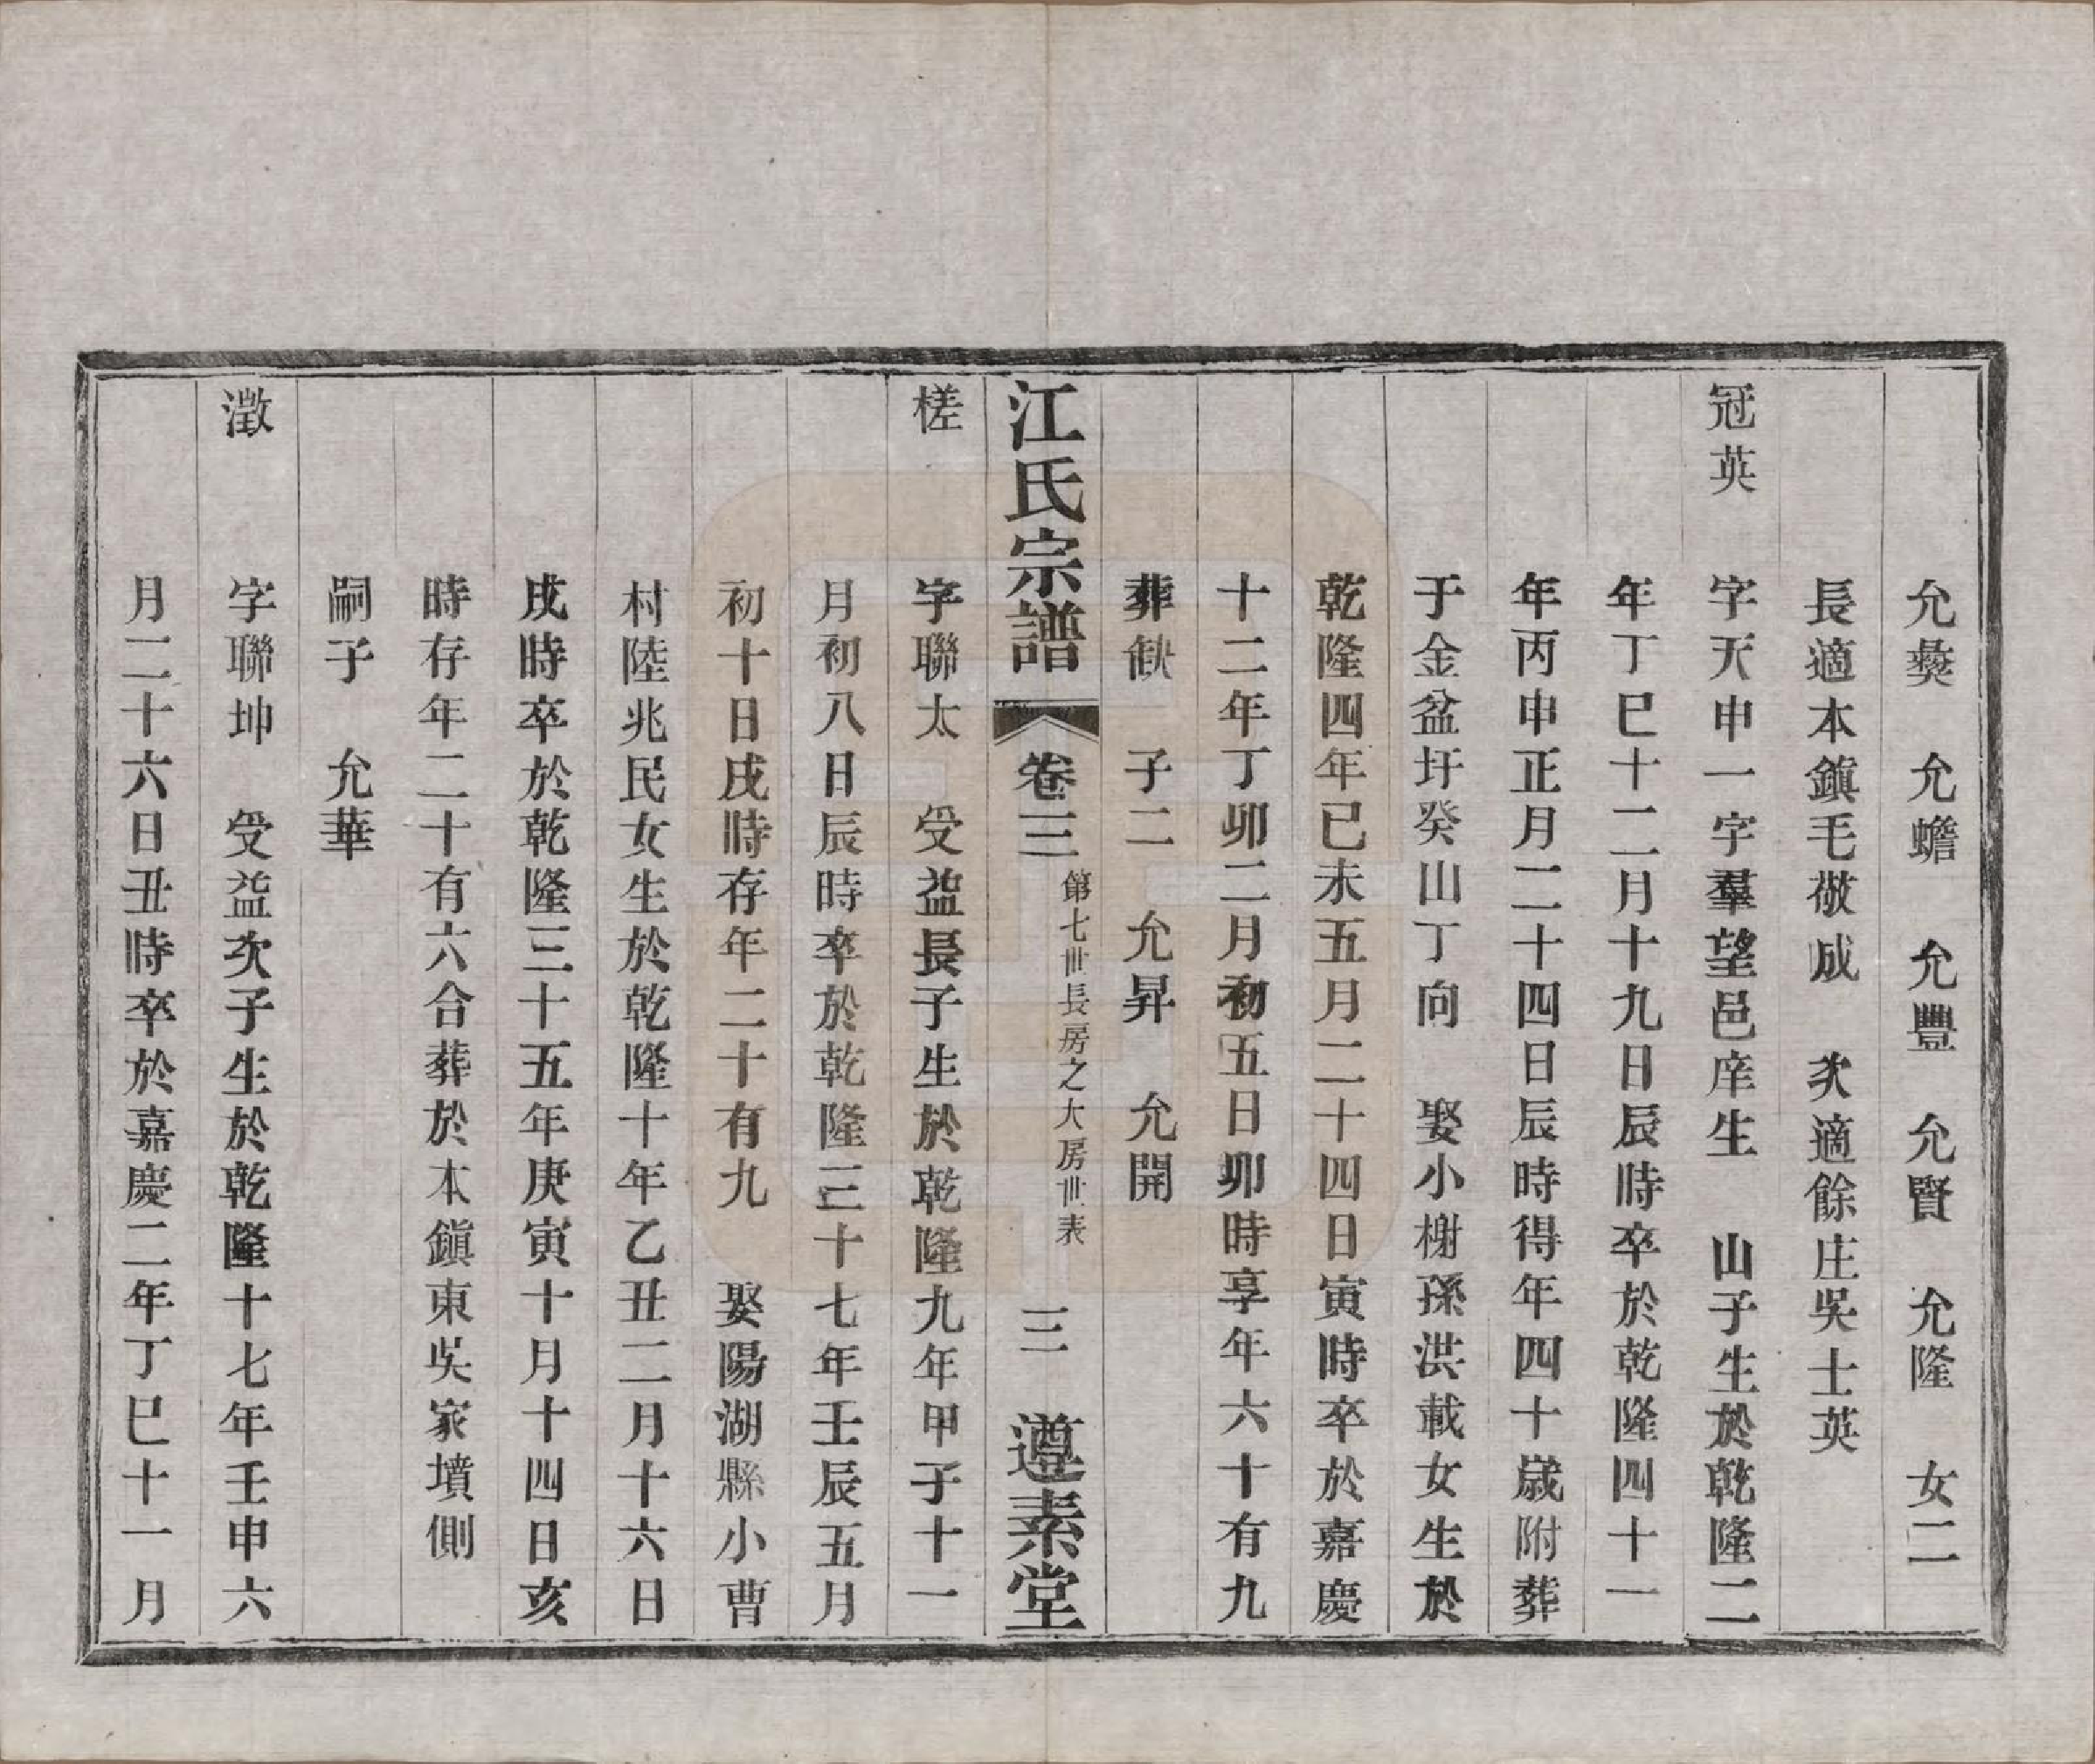 允彝　允蟾　允豐　允賢　允隆　女二
長適本鎮毛敬成　次適餘庄吳士英
冠英　字天申一字羣望邑庠生　山子生於乾隆二
年丁巳十二月十九日辰時卒於乾隆四十一
年丙申正月二十四日辰時得年四十歲附葬
于金盆圩癸山丁向　娶小榭孫洪載女生於
乾隆四年己未五月二十四日寅時卒於嘉慶
十二年丁卯二月初五日卯時享年六十有九
葬缺　子二　允昇　允開
江氏宗譜　卷三　第七世長房之大房世表　三　遵素堂
槎　字聯太　受益長子生於乾隆九年甲子十一
月初八日辰時卒於乾隆三十七年壬辰五月
初十日戌時存年二十有九　娶陽湖縣小曹
村陸兆民女生於乾隆十年乙丑二月十六日
戌時卒於乾隆三十五年庚寅十月十四日亥
時存年二十有六合葬於本鎮東吳家墳側
嗣子　允華
澂　字聯坤　受益次子生於乾隆十七年壬申六
月二十六日丑時卒於嘉慶二年丁巳十一月